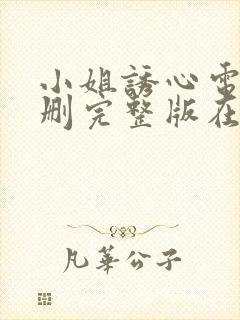 小姐誘心電
刪完整版在
凡華公子